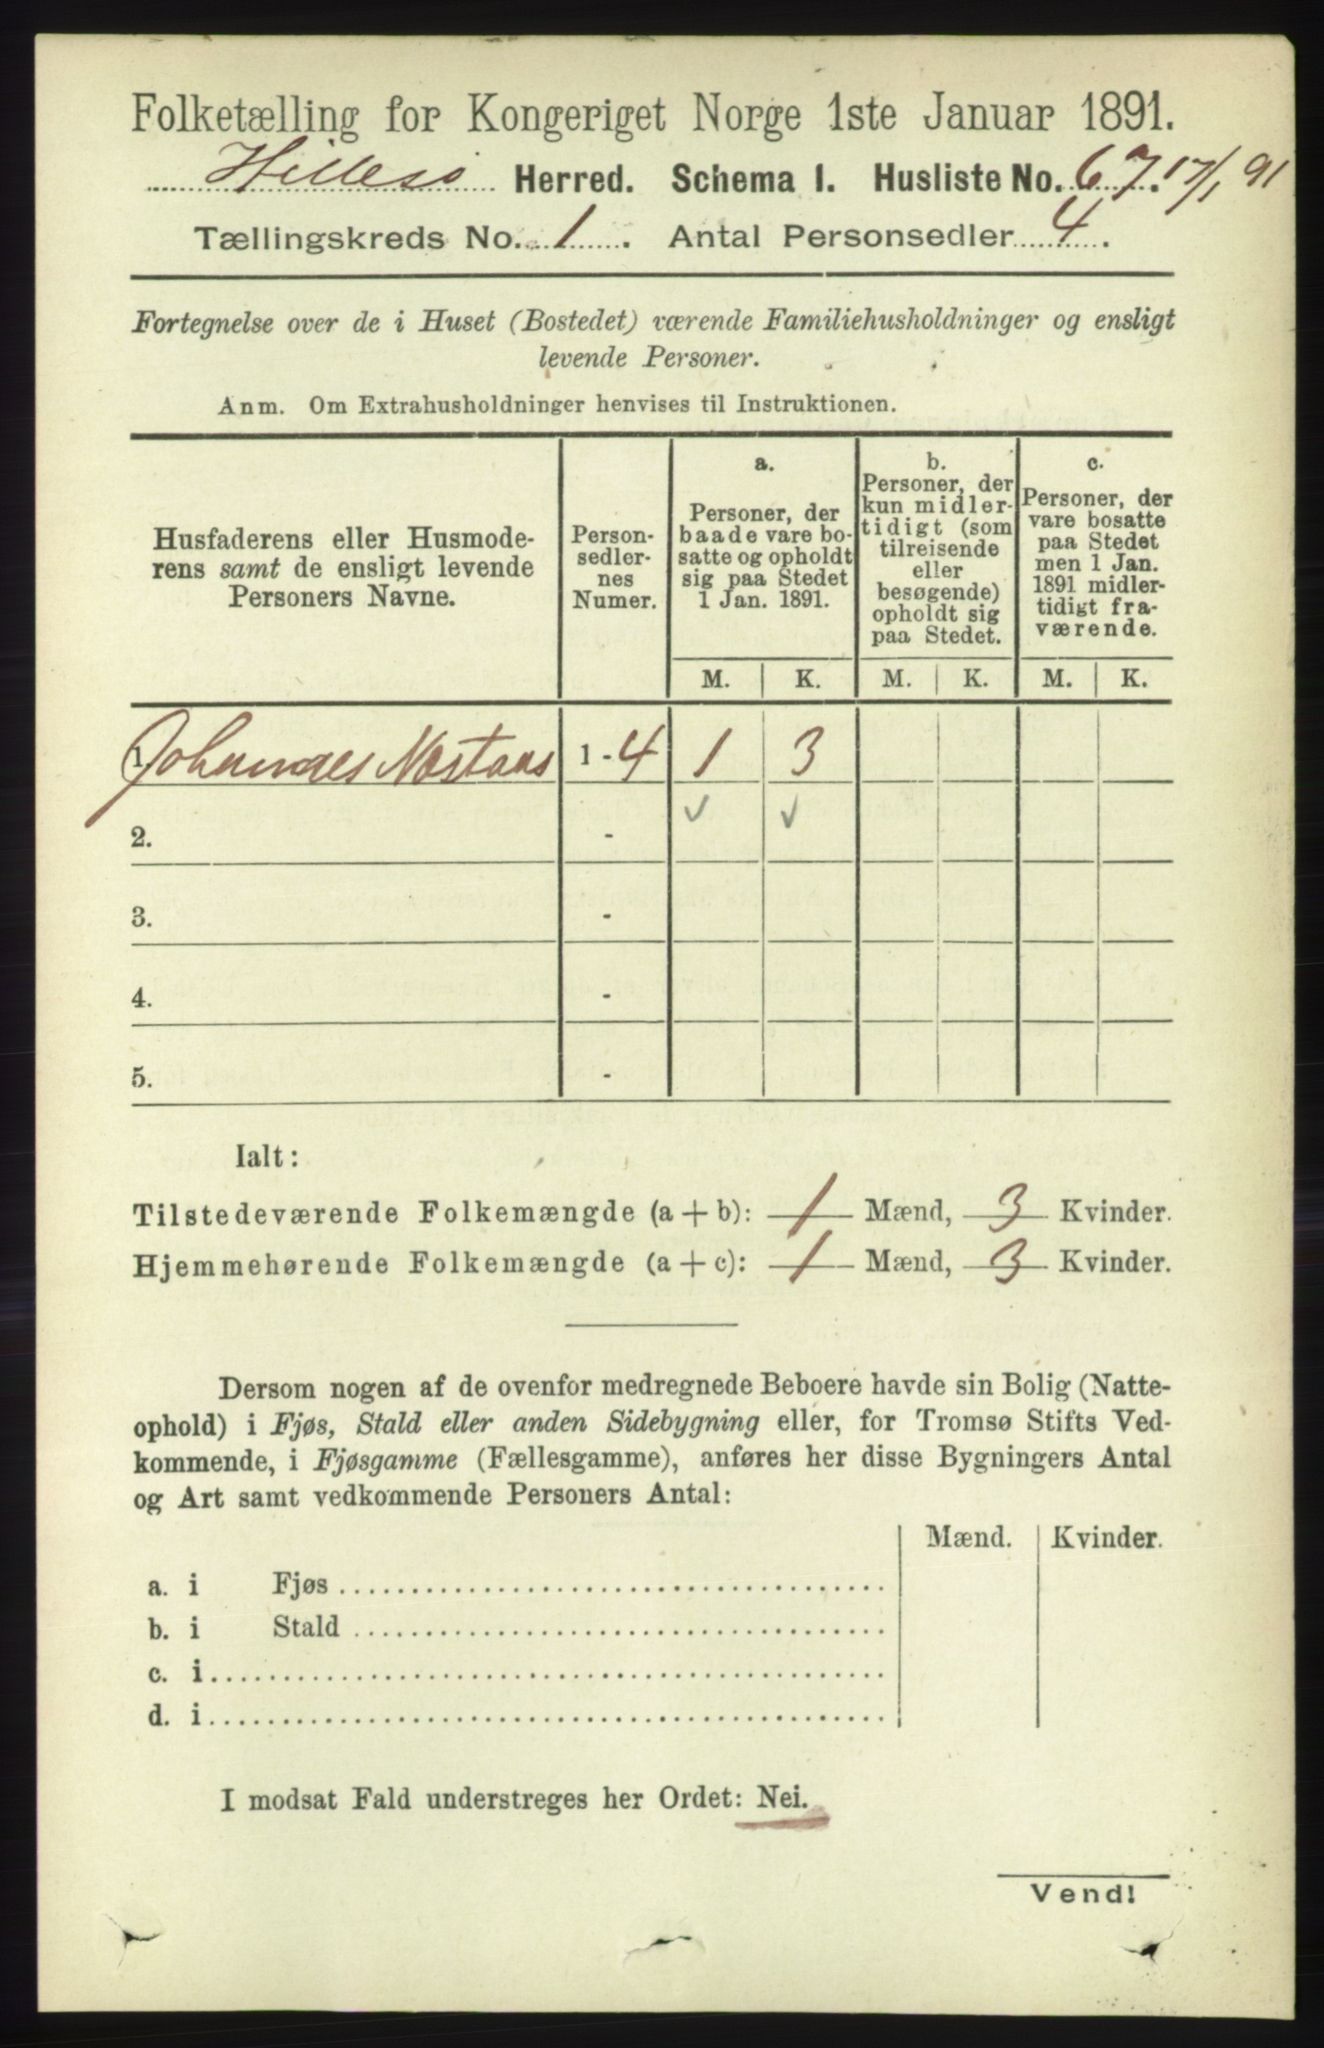 Folketælling for Kongeriget Norge 1ste Januar 1891.
Hillesø Herred. Schema I. Husliste No. 67. 17/1 91
Tællingskreds No. 1. Antal Personsedler 4.
Fortegnelse over de i Huset (Bostedet) værende Familiehusholdninger og ensligt
levende Personer.
Anm. Om Extrahusholdninger henvises til Instruktionen.
Husfaderens eller Husmode-
rens samt de ensligt levende
Personers Navne.
Person-
sedler-
nes
Numer.
a.
Personer, der
baade vare bo-
satte og opholdt
sig paa Stedet
1 Jan. 1891.
b.
Personer, der
kun midler-
tidigt (som
tilreisende
eller
besøgende)
opholdt sig
paa Stedet.
c.
Personer, der
vare bosatte
paa Stedet
men 1 Jan.
1891 midler-
tidigt fra-
værende.
M. K. M. K. M. K.
1. Johannes Nostaas 1 - 4 1 3
2. -
3. -
4. -
5. -
Ialt:
Tilstedeværende Folkemængde (a + b): 1 Mænd, 3 Kvinder.
Hjemmehørende Folkemængde (a + c): 1 Mænd, 3 Kvinder.
Dersom nogen af de ovenfor medregnede Beboere havde sin Bolig (Natte-
ophold) i Fjøs, Stald eller anden Sidebygning eller, for Tromsø Stifts Ved-
kommende, i Fjøsgamme (Fællesgamme), anføres her disse Bygningers Antal
og Art samt vedkommende Personers Antal:
Mænd. Kvinder.
a. i Fjøs
b. i Stald
c. i
d. i
I modsat Fald understreges her Ordet: Nei.
Vend!